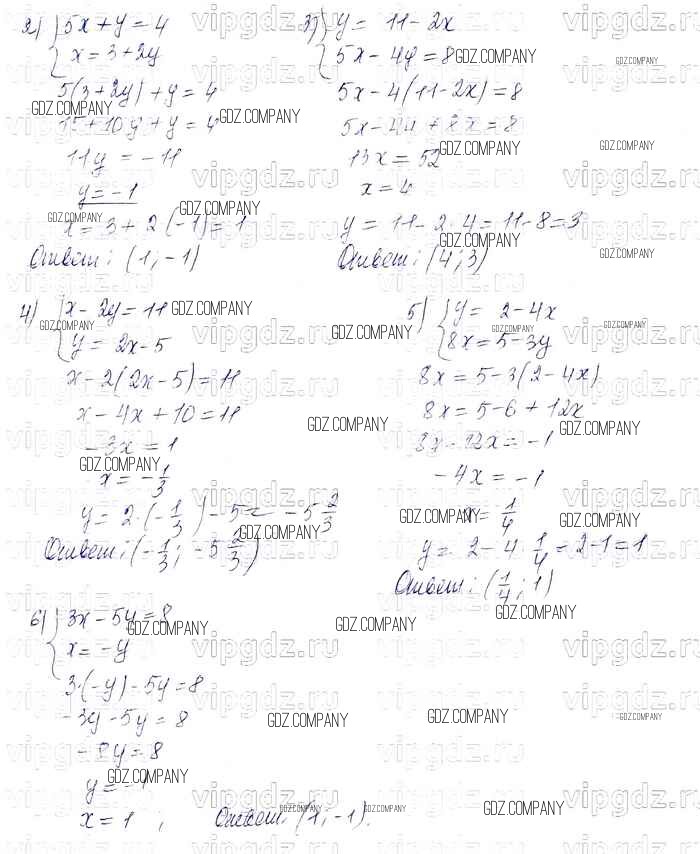 2) { 5x + y = 4
x = 3 + 2y
5(3 + 2y) + y = 4
15 + 10y + y = 4
11y = -11
y = -1
x = 3 + 2·(-1) = 1
Ответ: (1; -1)
3) { y = 11 - 2x
5x - 4y = 8
5x - 4(11 - 2x) = 8
5x - 44 + 8x = 8
13x = 52
x = 4
y = 11 - 2·4 = 11 - 8 = 3
Ответ: (4; 3)
4) { x - 2y = 11
y = 2x - 5
x - 2(2x - 5) = 11
x - 4x + 10 = 11
-3x = 1
x = -1/3
y = 2·(-1/3) - 5 = -5 2/3
Ответ: (-1/3; -5 2/3)
5) { y = 2 - 4x
8x = 5 - 3y
8x = 5 - 3(2 - 4x)
8x = 5 - 6 + 12x
8x - 12x = -1
-4x = -1
x = 1/4
y = 2 - 4·1/4 = 2 - 1 = 1
Ответ: (1/4; 1)
6) { 3x - 5y = 8
x = -y
3·(-y) - 5y = 8
-3y - 5y = 8
-8y = 8
y = -1
x = 1; Ответ: (1; -1).
GDZ.COMPANY
vipgdz.ru